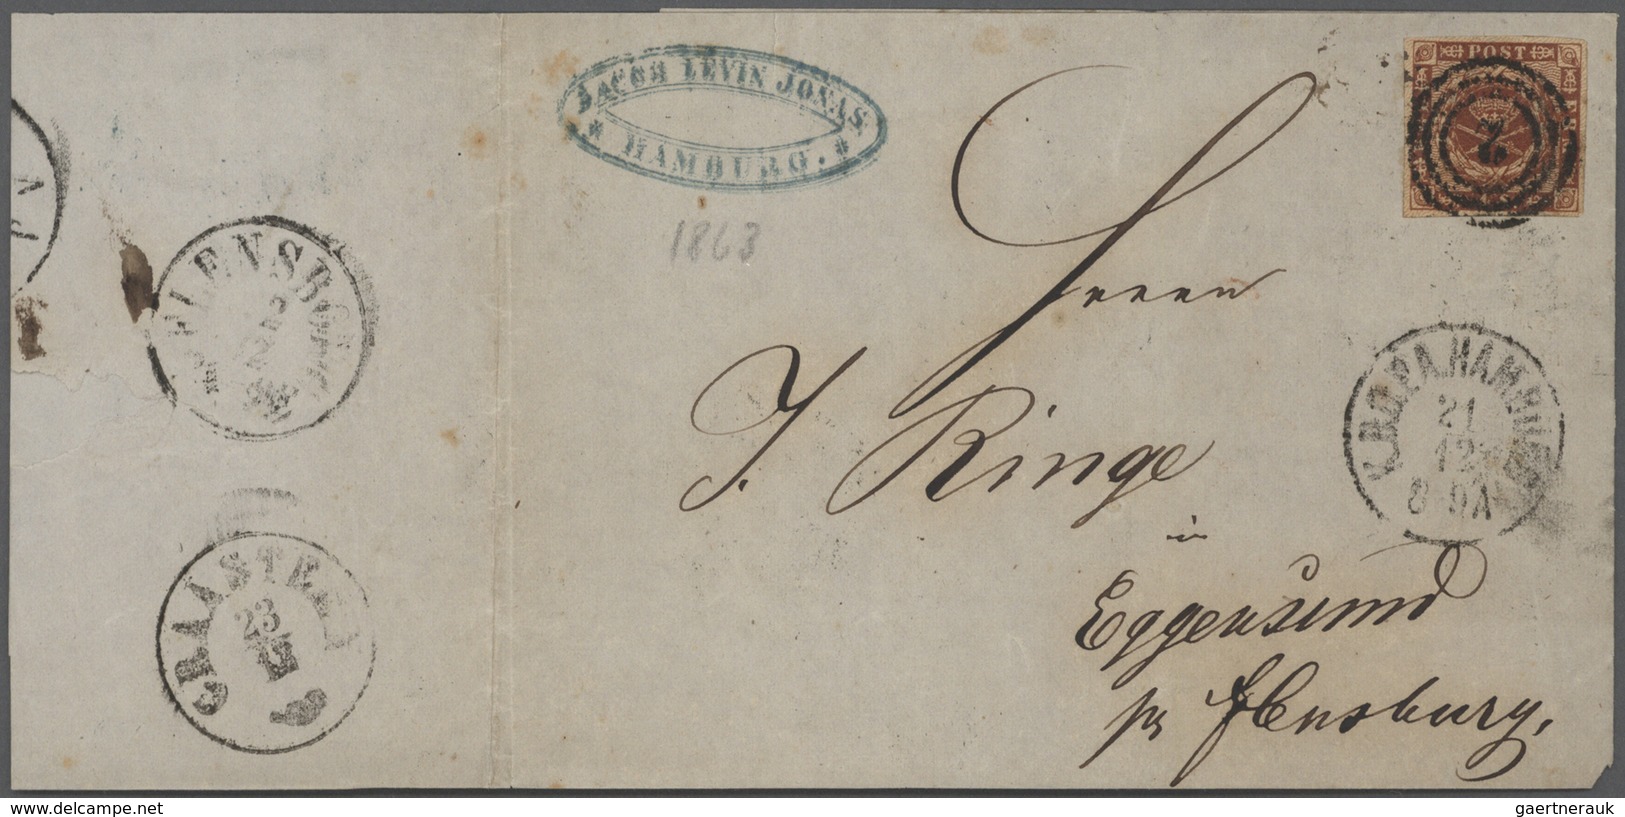 POST
JACOB LEVIN JONAS.
* HAMBURG. *
1863
Herrn
J. Ringe
in
Eggensund
pr Flensburg.
K.D.O.P.A. HAMBURG
21
12
8-9A
2
FLENSBURG
GRAASTEEN
23
12
www.delcampe.net
gaertnerauk